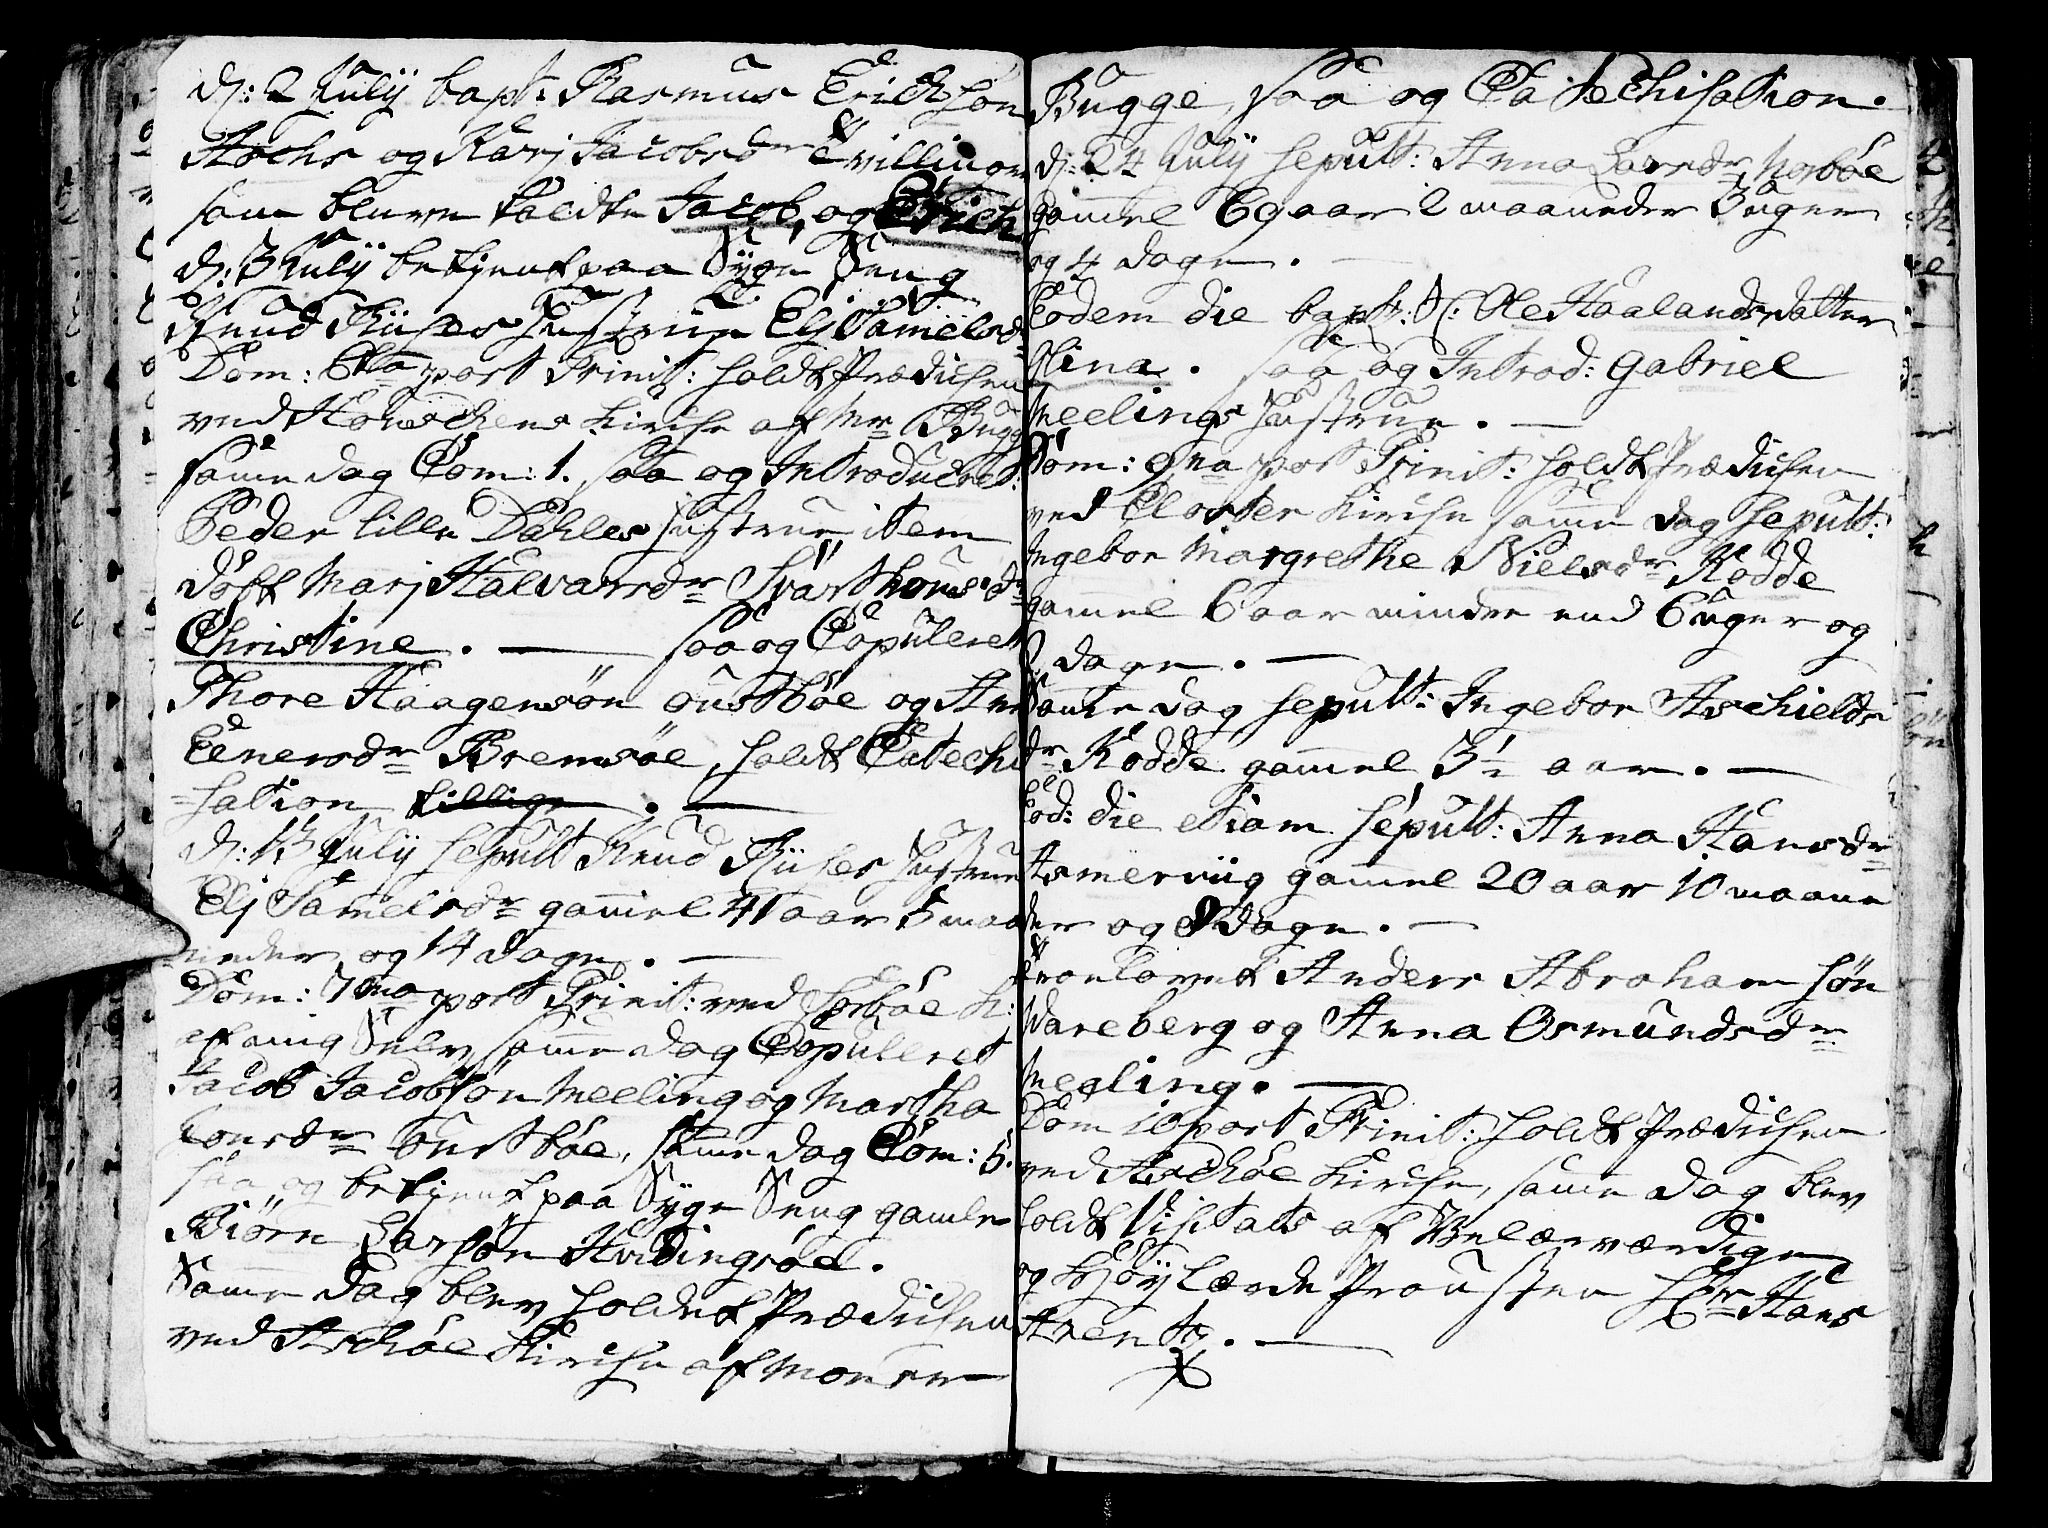 d: 2 July bapt: Rasmus Erichsøn
Aschs og Karj Jacobsdr Tvillinger
som bleven kaldte Jacob, og Erich
d: 3 July betjent paa Syge Seng
Knud Hustrue Elj Samuelsdr
Dom: 6ta post Trinit: holdt Prædichen
ved Houschens Kirche af Mr Bugge
same dag Com: 1. saa og Introduceret:
Peder lille Dahles Hustrue, item
døbt Marj Halvarsdr Svarthous dr
Christine. — saa og Copuleret
Thore Haagensøn Oustbøe og An
Einersdr Bremsøe, holdt Catechi
=sation tillige. —
d: 13 July sepult Knud Hustrue
Elj Samuelsdr gamel 41 aar 5 maa
neder og 14 dage. —
Dom: 7ma post Trinit: ved Sørbøe K:
af mig Selv, same dag Copuleret
Jacob Jacobsøn Meeling og Martha
Lonsdr Oustbøe, same dag Com: 5.
saa og betjent paa Syge Seng gamle
Biørn Larsøn Hvidingsøe.
Same Dag blev holdet Prædichen
ved Aschøe Kirche af Monsr
Bugge, saa og Catechisation.
d: 24 July sepult: Anna Larsdr Norbøe
gamel 69 aar 2 maaneder 3 uger
og 4 dage. —
Eodem die bapt: N: Ole Haalands datter
Elina. saa og Introd: Gabriel
Meelings Hustrue. —
Dom: 9na post Trinit: holdt Prædichen
ved Closter Kirche same dag sepult:
Ingebor Margrethe Nielsdr Rodde
gamel 6 aar mindre end 6 uger og
2 dage. —
Same dag sepult: Ingebor Aschields
dr Rodde gamel 3½ aar. —
Eod: die etiam sepult: Anna Hansdr
Asmerviig gamel 20 aar 10 maane
der og 8 dage. —
Troelovet Anders Abrahamsøn
Wareberg og Anna Osmundsdr
Meeling. —
Dom 10 post Trinit: holdt Prædichen
ved Aschøe Kirche, same dag blev
holdt Visitats af Velærværdige
og Høylærde Prousten Hr Hans
Arentz. —